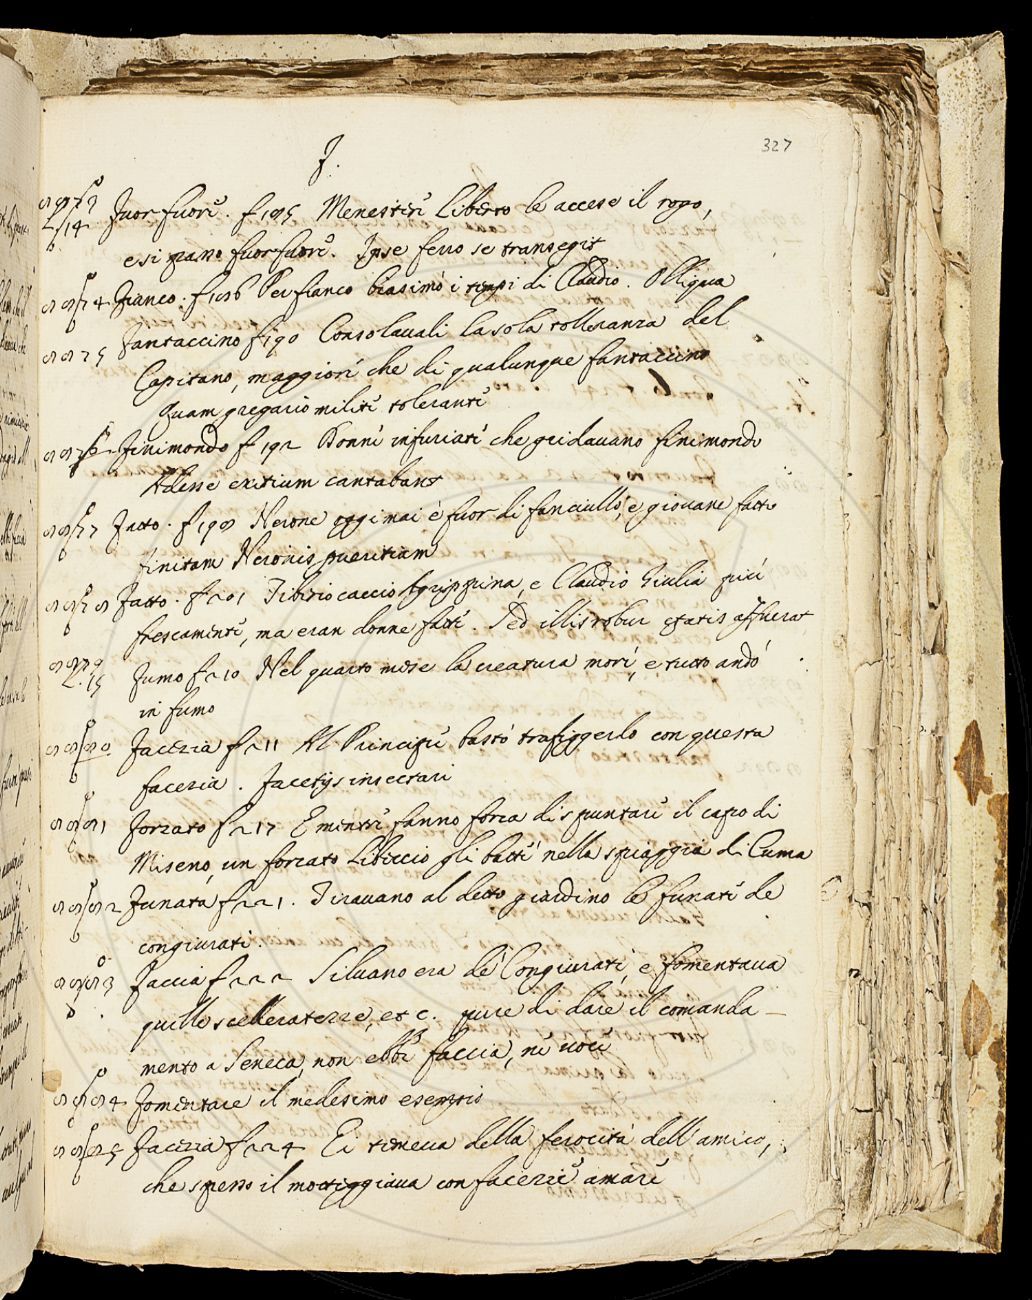 327
F.
Fuor fuori. f 195 Menestier Liberto le accese il rogo,
e si passo fuor fuori. Ipse ferro se transegit
Fianco. f 196 Per fianco biasimò i tempi di Claudio. Obliqua
Fantaccino f 190 Consolavali la sola tolleranza del
Capitano, maggiori che di qualunque fantaccino
Quam gregario militi toleranti
Finimondo f 192 Donne infuriate che gridavano finimondi
Adesse exitium cantabant
Fatto. f 199 Nerone oggimai è fuor di fanciullo, e giovane fatto
finitam Neronis pueritiam
Fatto. f 201 Tiberio caccio Agrippina, e Claudio Giulia più
frescamente, ma eran donne fatte. Sed illis robur ętatis affuerat
Fumo f 210 Nel quarto mese la creatura morì, e tutto andò
in fumo
Facezia f 211 Al Principe bastò trafiggerlo con questa
facezia. Facetijs insectari
Forzato f 217 E mentre fanno forza di spuntare il capo di
Miseno, un forzato Libeccio gli batté nella spiaggia di Cuma
Funata f 221. Tiravano al detto giardino le funate de
congiurati.
Faccia f 222 Silvano era de Congiurati, e fomentava
quelle scelleratezze, et c. pure di dare il comanda-
mento a Seneca, non ebbe faccia, ne voce
Fomentare il medesimo esempio
Facezia f 224 Ei temeva della ferocità dell'amico,
che spesso il motteggiava con facezie amare